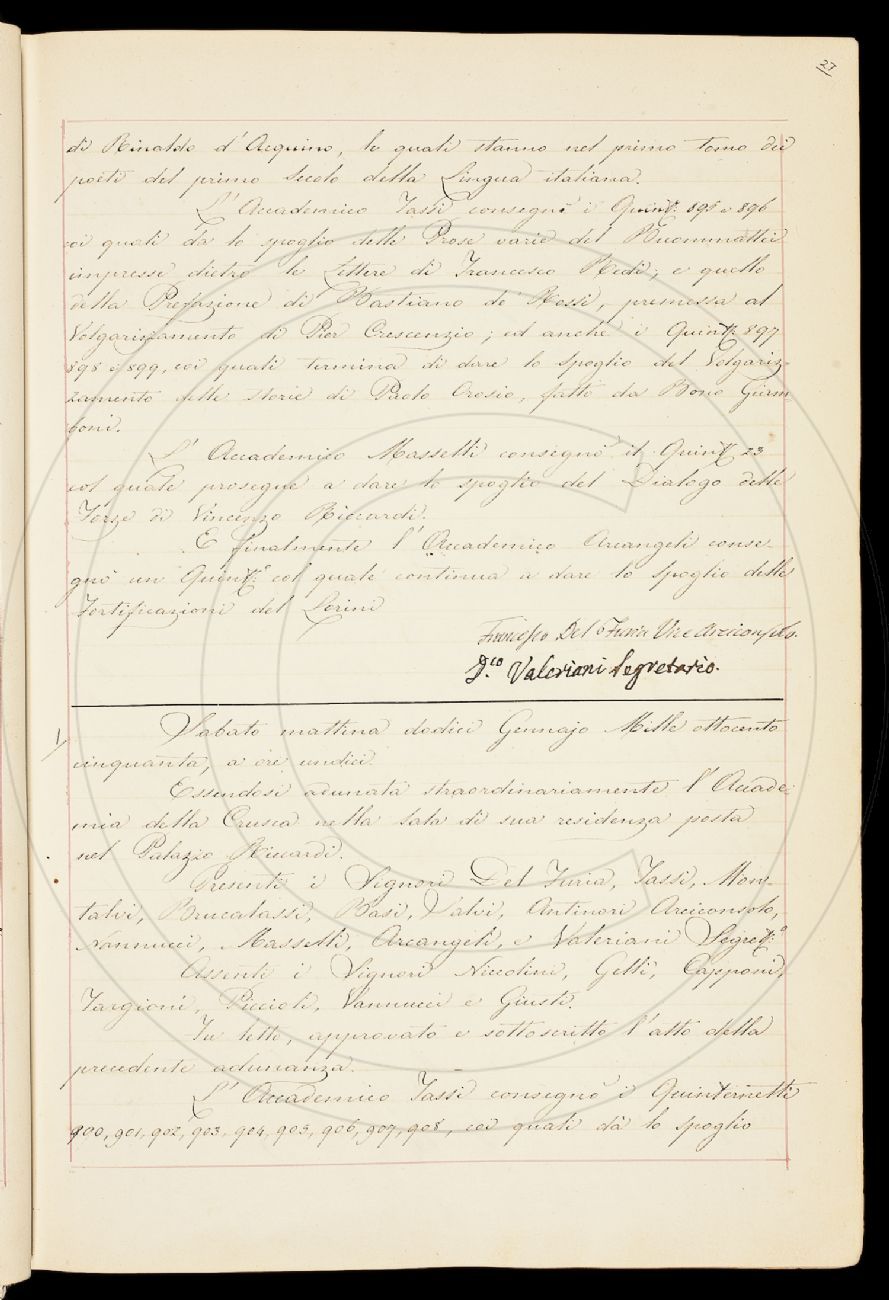 27
di Rinaldo d'Acquino, le quali stanno nel primo Tomo dei
poeti del primo secolo della Lingua italiana.
L'Accademico Tassi consegnò i Quint.i 895 e 896
coi quali dà lo spoglio delle Prose varie del Buommattei
impresse dietro le Lettere di Francesco Redi; e quello
della Prefazione di Bastiano de' Rossi, premessa al
Volgarizzamento di Pier Crescenzio; ed anche i Quint.i 897
898 e 899, coi quali termina di dare lo spoglio del Volgariz-
zamento delle storie di Paolo Orosio, fatto da Bono Giam-
boni.
L' Accademico Masselli consegnò il Quint.o 23
col quale prosegue a dare lo spoglio del Dialogo delle
Forze di Vincenzo Riccardi.
E finalmente l'Accademico Arcangeli conse-
gnò un Quint.o col quale continua a dare lo spoglio delle
Fortificazioni del Lorini
Francesco Del Furia Vice Arciconsolo.
D.co Valeriani Segretario.
1/
Sabato mattina dodici Gennajo Mille ottocento
cinquanta, a ore undici.
Essendosi adunata straordinariamente l'Accade-
mia della Crusca nella sala di sua residenza posta
nel Palazzo Riccardi.
Presenti i Signori Del Furia, Tassi, Mon-
talvi, Brucalassi, Basi, Salvi, Antinori Arciconsolo,
Nannucci, Masselli, Arcangeli, e Valeriani Segret.o
Assenti i Signori Niccolini, Gelli, Capponi,
Targioni, Piccioli, Vannucci e Giusti.
Fu letto, approvato e sottoscritto l'atto della
precedente adunanza.
L' Accademico Tassi consegnò i Quinternetti
900, 901, 902, 903, 904, 905, 906, 907, 908, coi quali dà lo spoglio